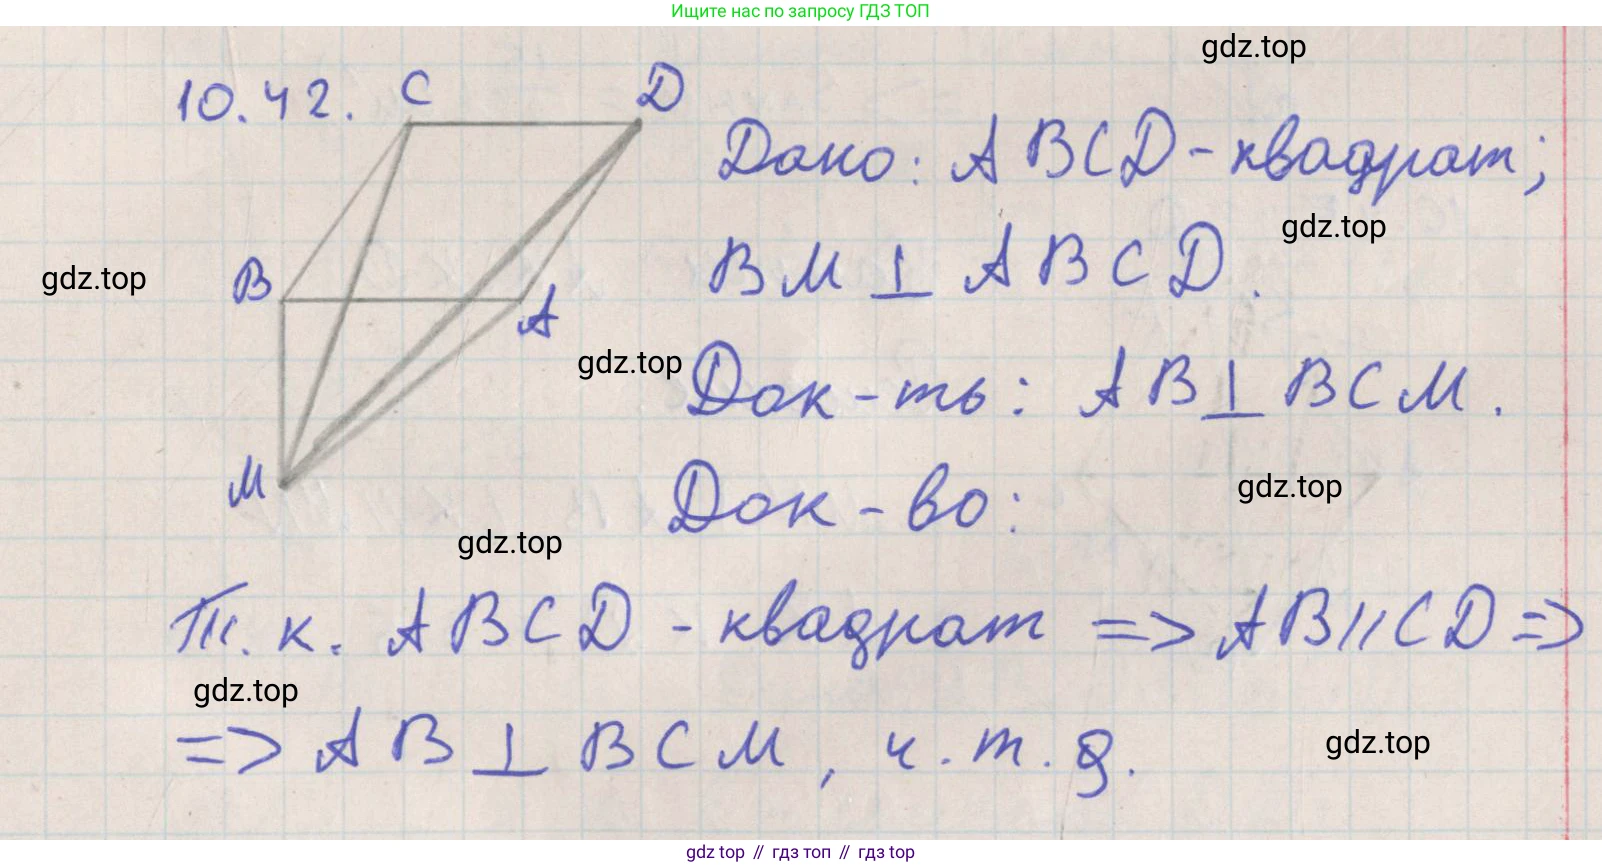 Ищите нас по запросу ГДЗ ТОП
gdz.top
10.42.
C
D
Дано: ABCD - квадрат;
gdz.top
B
gdz.top
BM ⊥ ABCD.
A
gdz.top
Док-ть: AB ⊥ BCM.
M
gdz.top
Док-во:
gdz.top
Т.к. ABCD - квадрат => AB // CD =>
gdz.top
=> AB ⊥ BCM, ч.т.д.
gdz.top
gdz top // гдз топ // гдз top